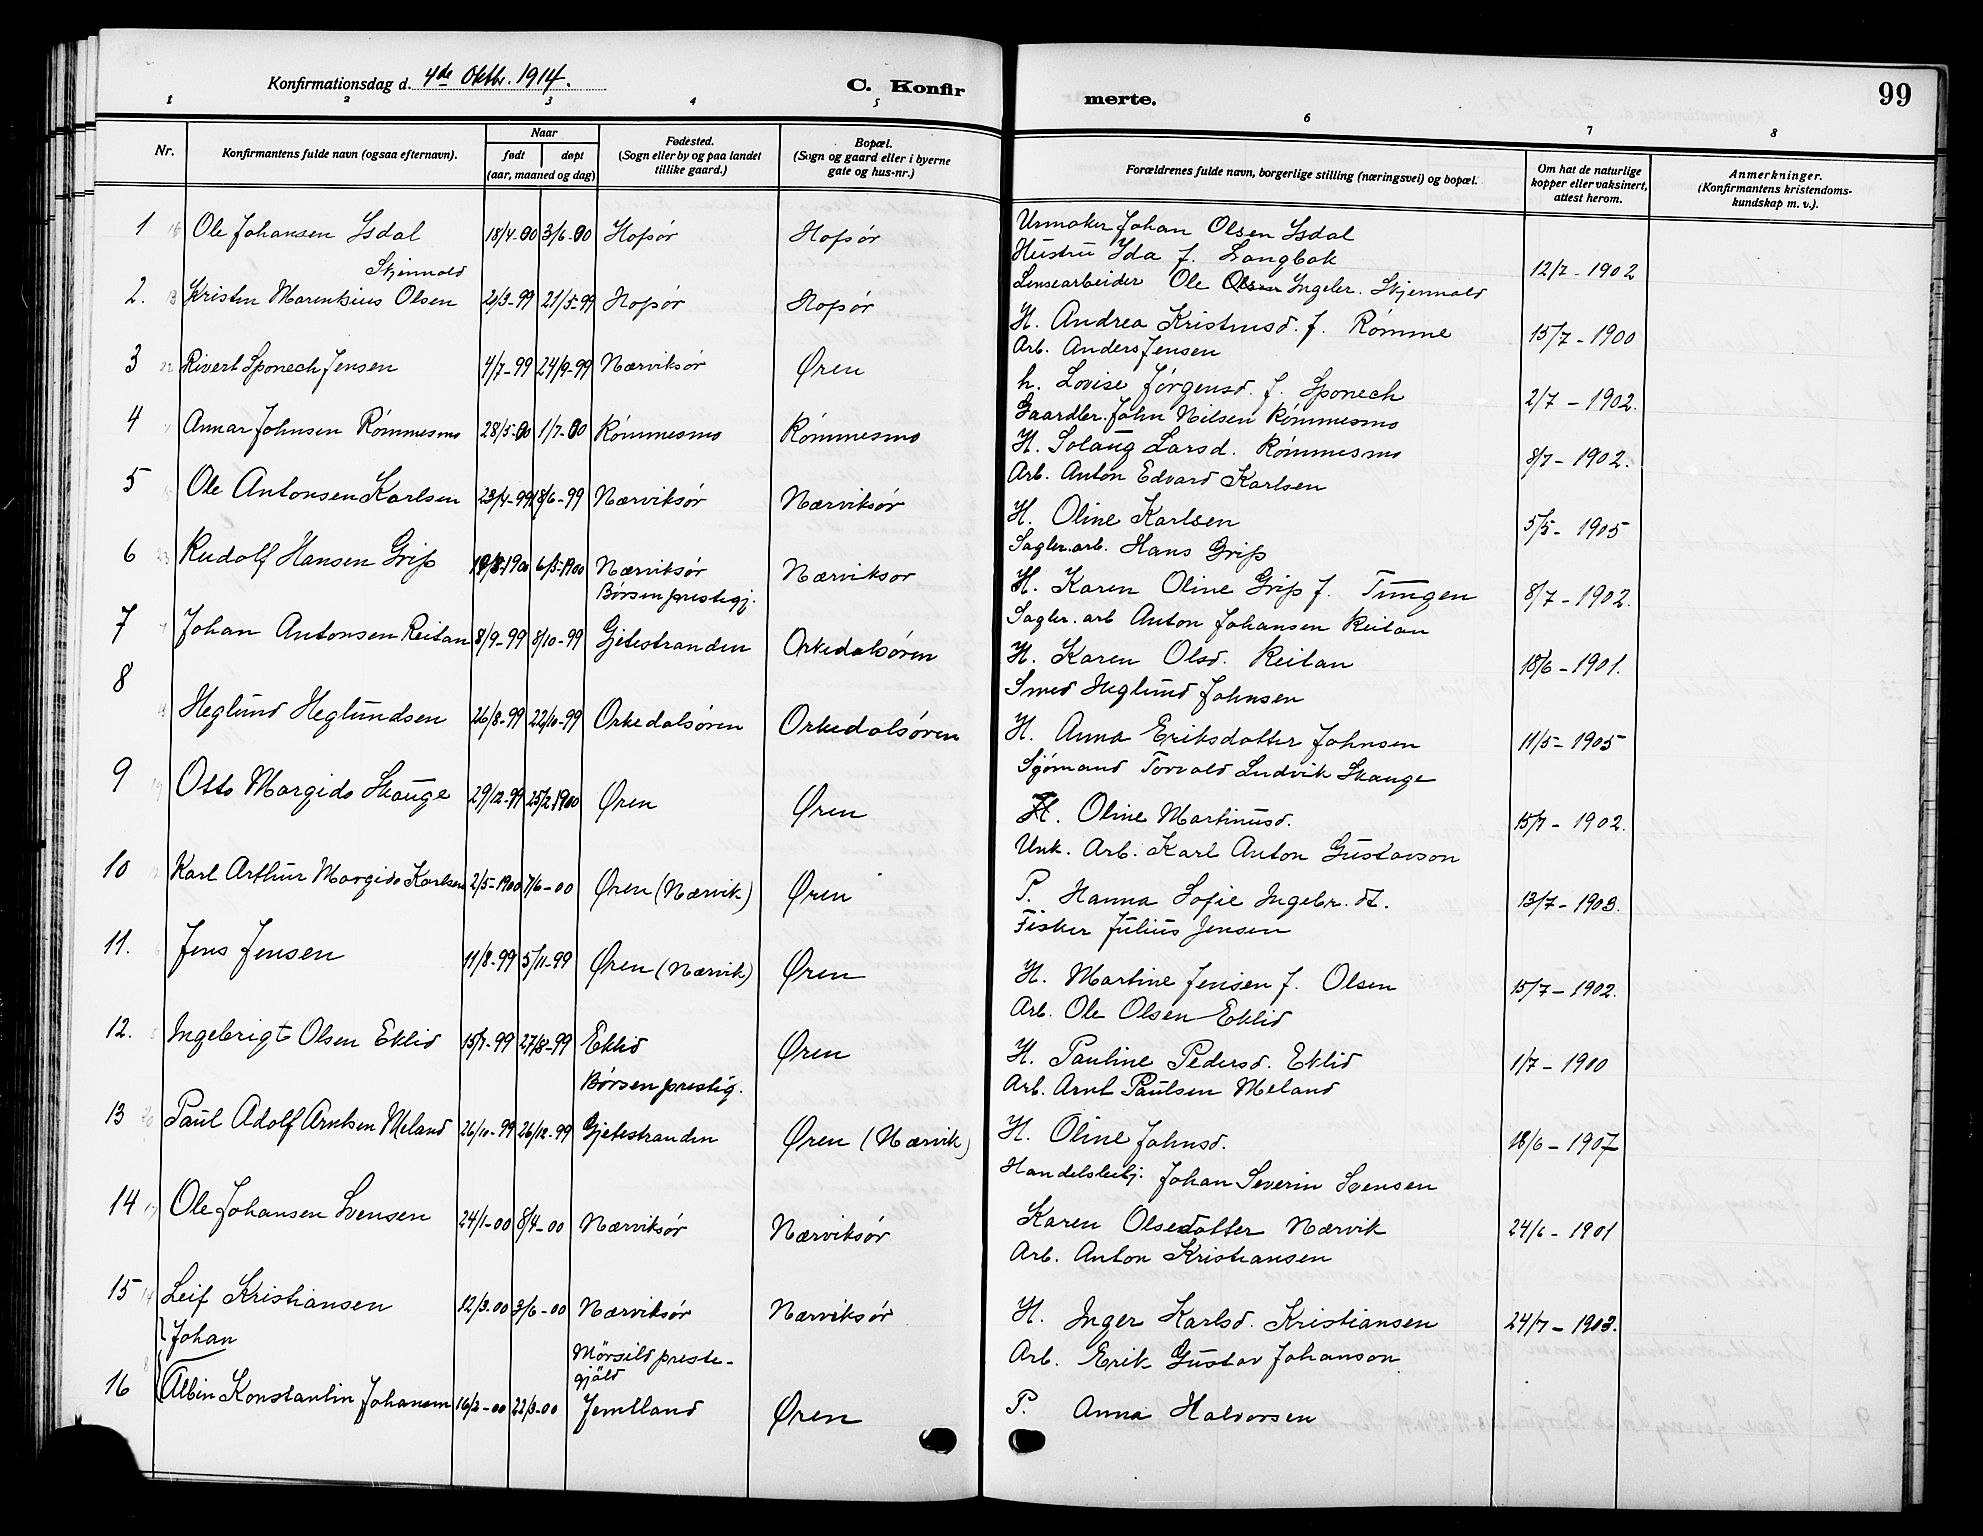 Konfirmationsdag d. 4de Oktbr. 1914.
C. Konfir
merte.
99
1 2 3 4 5 6 7 8
Nr.
Konfirmantens fulde navn (ogsaa efternavn).
Naar
født døpt
(aar, maaned og dag)
Fødested.
(Sogn eller by og paa landet
tillike gaard.)
Bopæl.
(Sogn og gaard eller i byerne
gate og hus-nr.)
Forældrenes fulde navn, borgerlige stilling (næringsvei) og bopæl.
Om hat de naturlige
kopper eller vaksinert,
attest herom.
Anmerkninger.
(Konfirmantens kristendoms-
kundskap m. v.).
1 16 Ole Johansen Isdal 18/4-00 3/6-00 Hofsør Hofsør
Urmaker Johan Olsen Isdal
Hustru Ida f. Langbak 12/7-1902
Skjenvald
2. 13 Kristen Marentsius Olsen 2/3-99 21/5-99 Hofsør Hofsør
Lensearbeider Ole Olsen Ingebr. Skjenvald
H. Andrea Kristensd. f. Rømme 15/7-1900
3 22 Rivert Sponech Jensen 4/7-99 24/9-99 Nærviksør Øren
Arb. Anders Jensen
h. Lovise Jørgensd. f. Sponech 2/7-1902.
4 Annar Johnsen Rømmesmo 28/5-00 1/7-00 Rømmesmo Rømmesmo
Gaardbr. John Nilsen Rømmesmo
H. Solaug Larsd. Rømmesmo 8/7-1902.
5 Ole Antonsen Karlsen 23/4-99 18/6-99 Nærviksør Nærviksør
Arb. Anton Edvard Karlsen
H. Oline Karlsen 5/5-1905
6 23 Rudolf Hansen Grip 19/3-1900 6/5-1900 Nærviksør Nærviksør
Sagbr.arb. Hans Grip
H. Karen Oline Grip f. Tungen 8/7-1902.
Børsen prestegj.
7 Johan Antonsen Reitan 8/9-99 8/10-99 Gjetestranden Orkedalsøren
Sagbr. arb Anton Johansen Reitan
H. Karen Olsd. Reitan 18/6-1901.
8 Heglund Heglundsen 26/8-99 22/10-99 Orkedalsøren Orkedalsøren
Smed Heglund Johnsen
H. Anna Eriksdatter Johnsen 11/5-1905
9 19 Otto Margido Skauge 29/12-99 25/2-1900 Øren Øren
Sjømand Torvald Ludvik Skauge
H. Oline Martinusd. 15/7-1902.
10 Karl Arthur Margido Karlsen 2/5-1900 7/6-00 Øren (Nærvik) Øren
Unk. Arb. Karl Anton Gustavson
P. Hanna Sofie Ingebr. dt. 13/7-1903.
11. Jens Jensen 11/8-99 5/11-99 Øren (Nærvik) Øren
Fisker Julius Jensen
H. Martine Jensen f. Olsen 15/7-1902.
12. Ingebrigt Olsen Eklid 15/7-99 27/8-99 Eklid Øren
Arb. Ole Olsen Eklid
H. Pauline Pedersd. Eklid 1/7-1900
Børsen prestig.
13 20 Paul Adolf Arntsen Meland 26/10-99 26/12-99 Gjetestranden Øren (Nærvik)
Arb. Arnt Paulsen Meland
H. Oline Johnsd. 18/6-1907
14 17 Ole Johansen Svensen 24/1-00 8/4-00 Nærviksør Nærviksør
Handelsbetj. Johan Severin Svensen
Karen Olsedatter Nærvik 24/6-1901
15 14 Leif Kristiansen 12/3-00 3/6-00 Nærviksør Nærviksør
Arb. Anton Kristiansen
H. Inger Karlsd. Kristiansen 24/7-1903.
Johan
Mörsild preste-
gjäld
16 Albin Konstantin Johansen 16/2-00 22/3-00 Jemtland Øren
Arb. Erik Gustav Johanson
P. Anna Halvorsen